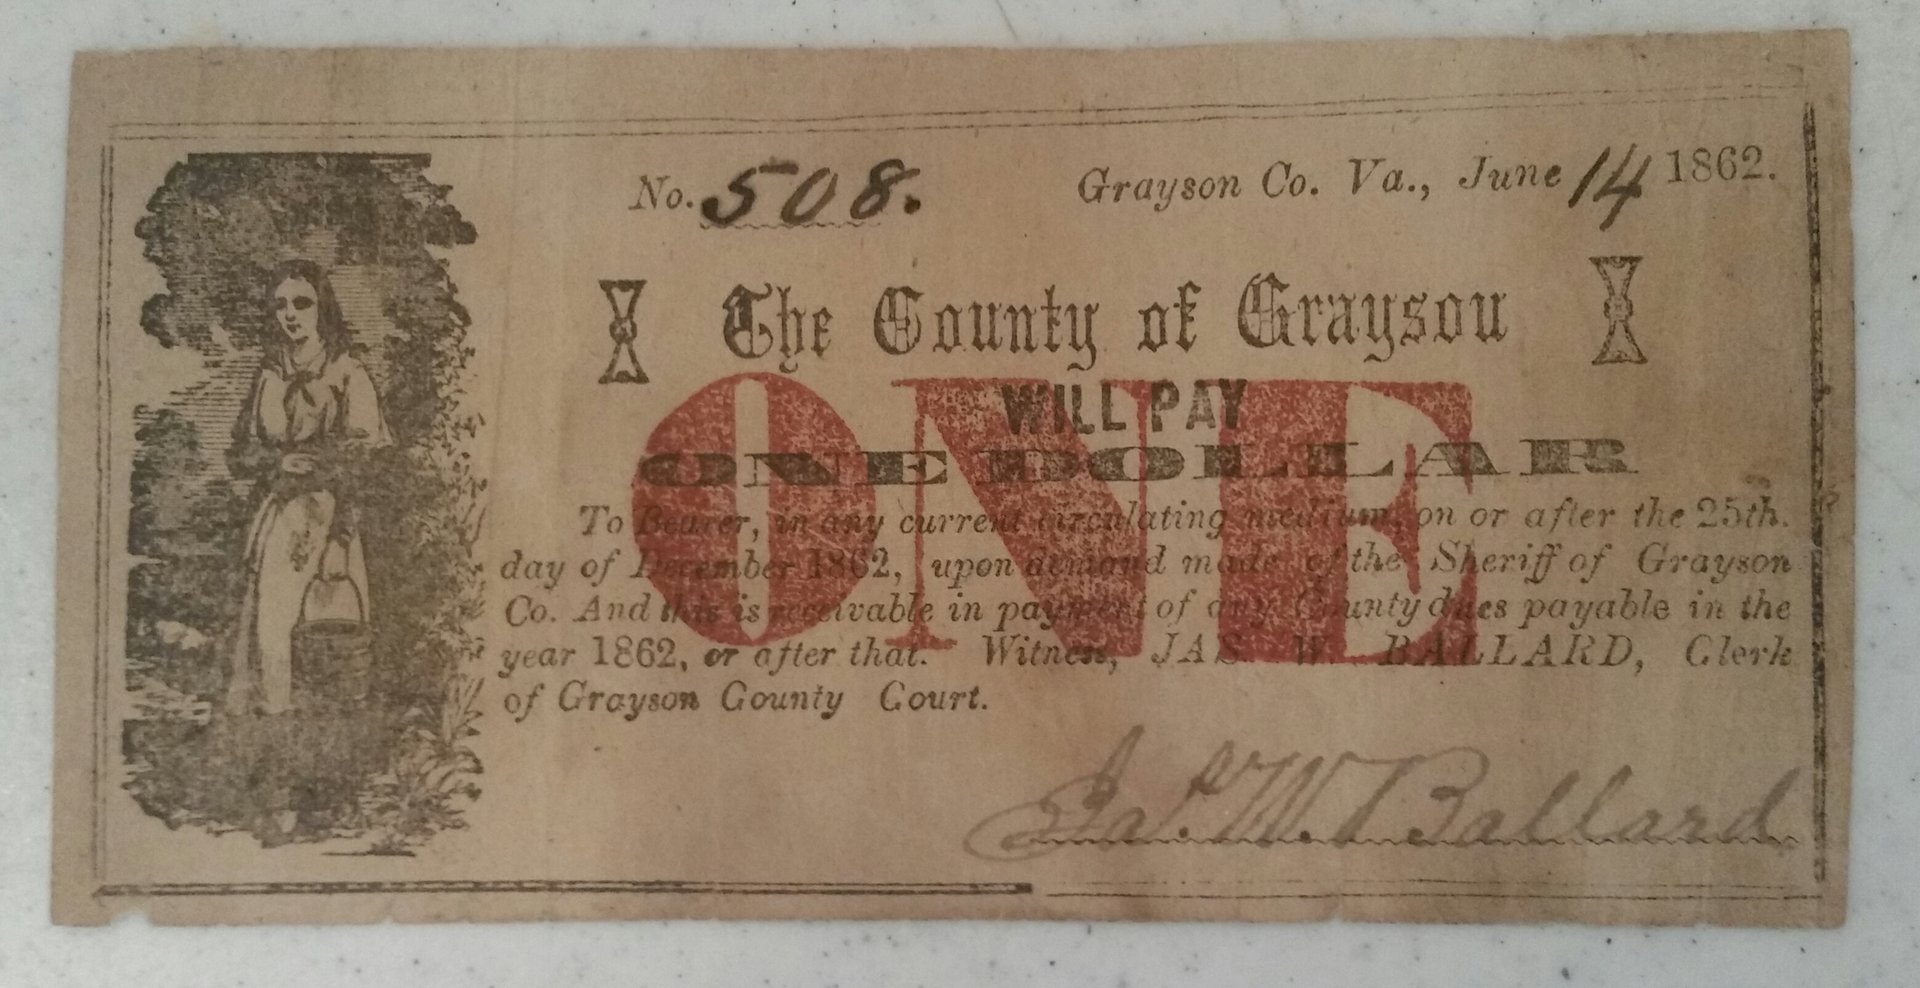 No. 508. Grayson Co. Va., June 14 1862.
The County of Graysou
WILL PAY
ONE DOLLAR
ONE
To Bearer, in any current circulating medium, on or after the 25th.
day of December 1862, upon demand made of the Sheriff of Grayson
Co. And this is receivable in payment of any County dues payable in the
year 1862, or after that. Witness, JAS. W. BALLARD, Clerk
of Grayson County Court.
Jas. W. Ballard